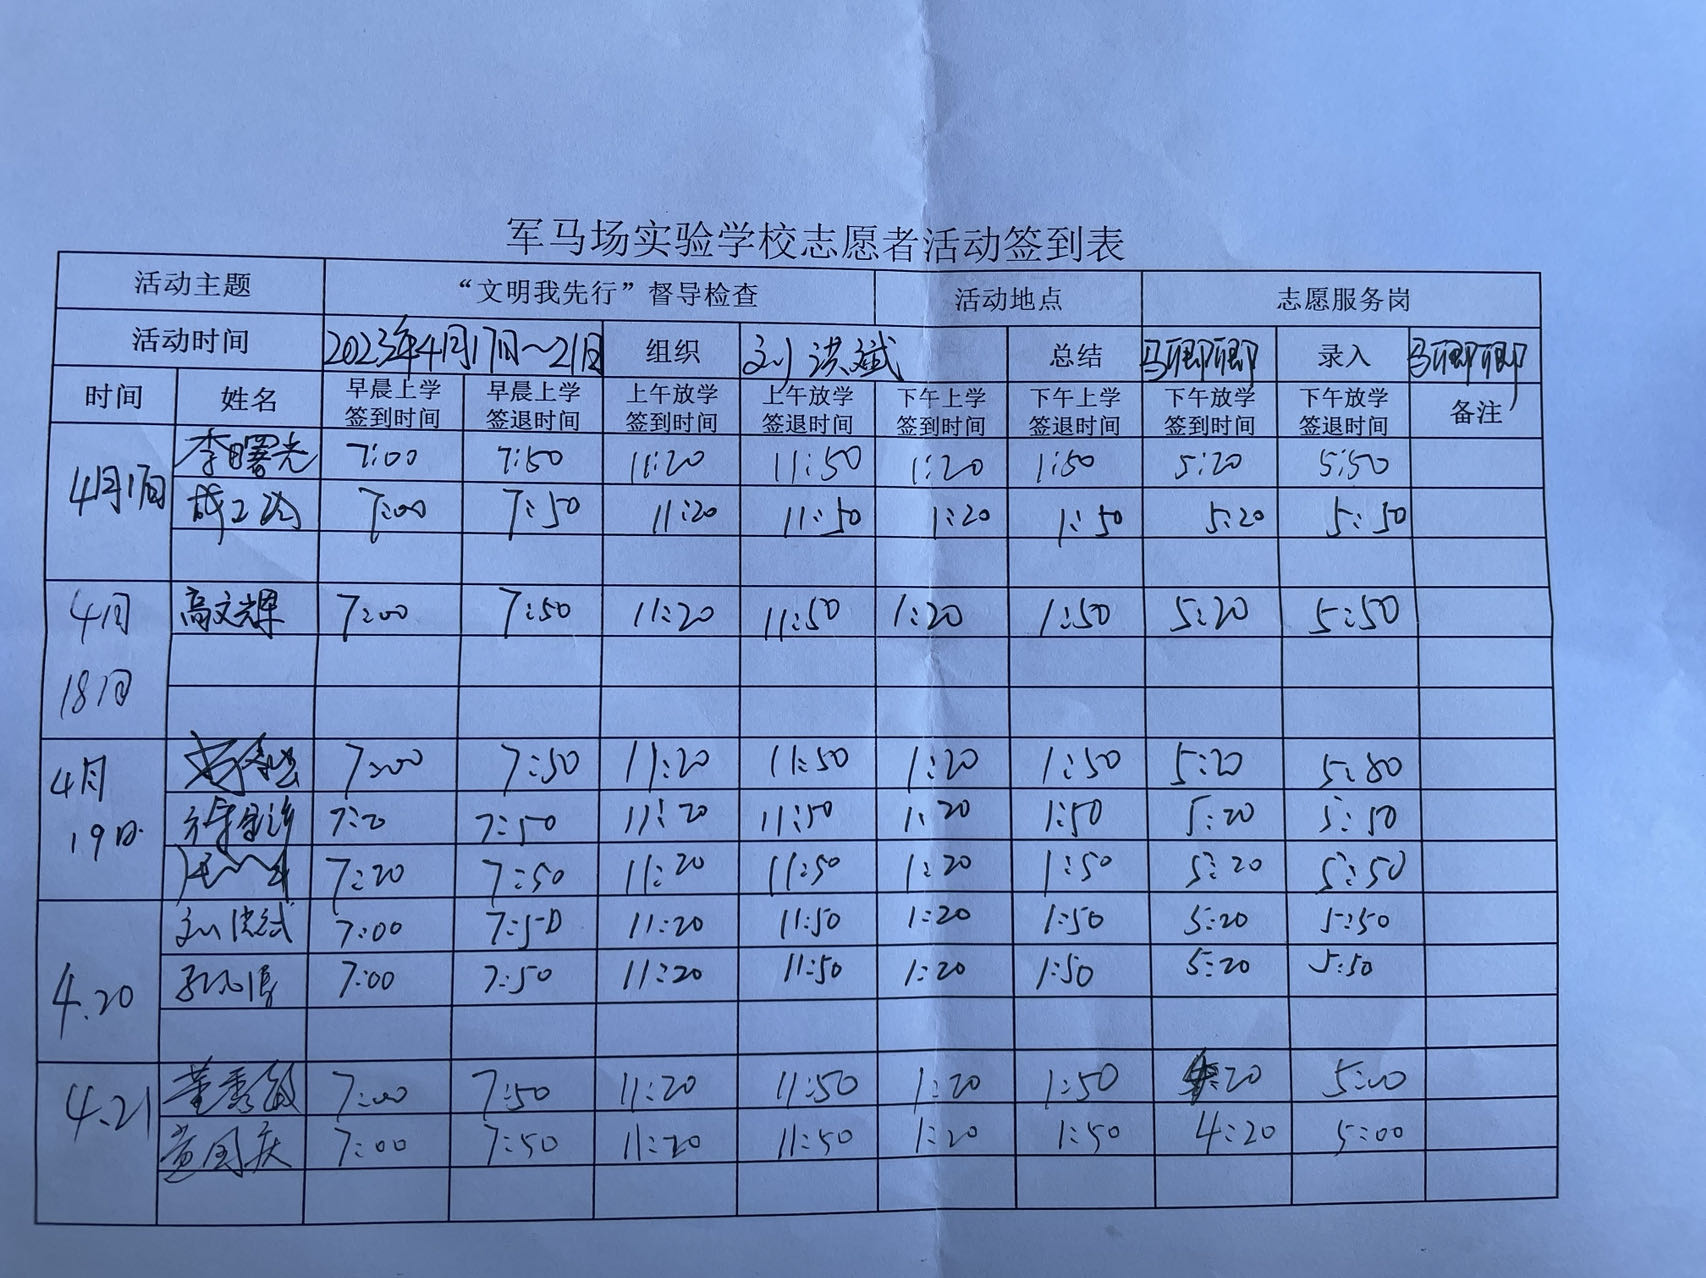 军马场实验学校志愿者活动签到表
活动主题 “文明我先行”督导检查 活动地点 志愿服务岗
活动时间 2023年4月17日~21日 组织 刘洪斌 总结 马卿卿 录入 马卿卿
时间 姓名 早晨上学签到时间 早晨上学签退时间 上午放学签到时间 上午放学签退时间 下午上学签到时间 下午上学签退时间 下午放学签到时间 下午放学签退时间 备注
4月17日 李曙光 7:00 7:50 11:20 11:50 1:20 1:50 5:20 5:50
7:00 7:50 11:20 11:50 1:20 1:50 5:20 5:50
4月18日 高文辉 7:00 7:50 11:20 11:50 1:20 1:50 5:20 5:50
4月19日 7:00 7:50 11:20 11:50 1:20 1:50 5:20 5:50
7:50 11:20 11:50 1:20 1:50 5:20 5:50
7:20 7:50 11:20 11:50 1:20 1:50 5:20 5:50
4.20 刘洪斌 7:00 7:50 11:20 11:50 1:20 1:50 5:20 5:50
7:00 7:50 11:20 11:50 1:20 1:50 5:20 5:50
4.21 董秀敏 7:00 7:50 11:20 11:50 1:20 1:50 4:20 5:00
黄国庆 7:00 7:50 11:20 11:50 1:20 1:50 4:20 5:00